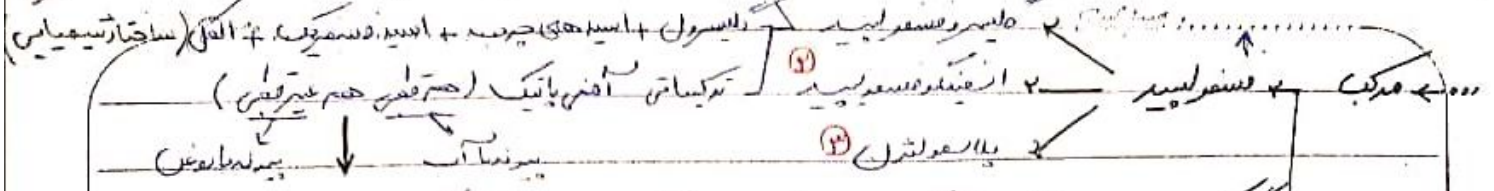 گلیسروفسفولیپید ← گلیسرول + اسیدهای چرب + اسید فسفریک + الکل (ساختار شیمیایی)
... ← مرکب ← فسفولیپید ← اسفنگوفسفولیپید ② ترکیباتی آمفی پاتیک (هم قطبی هم غیر قطبی)
پلاسمالوژن ③ پیوند با آب پیوند با روغن